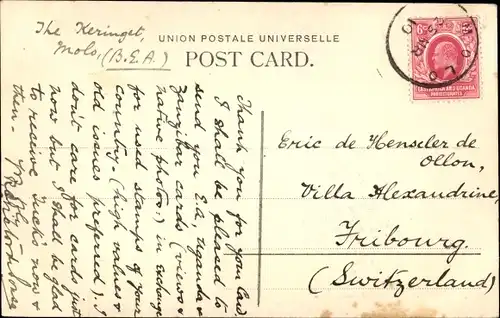 The Keringet,
Molo, (B.E.A.)
UNION POSTALE UNIVERSELLE
POST CARD.
MOLO
EAST AFRICA AND UGANDA
PROTECTORATES
Thank you for your Card,
I shall be pleased to
send you E.A., Uganda &
Zanzibar cards (views &
native photos,) in exchange
for used stamps of your
country - (high values &
old issues preferred). I
don't care for cards just
now but I shall be glad
to receive Tuck's now &
then -
Eric de Henseler de
Ollon,
Villa Alexandrine,
Fribourg.
(Switzerland)